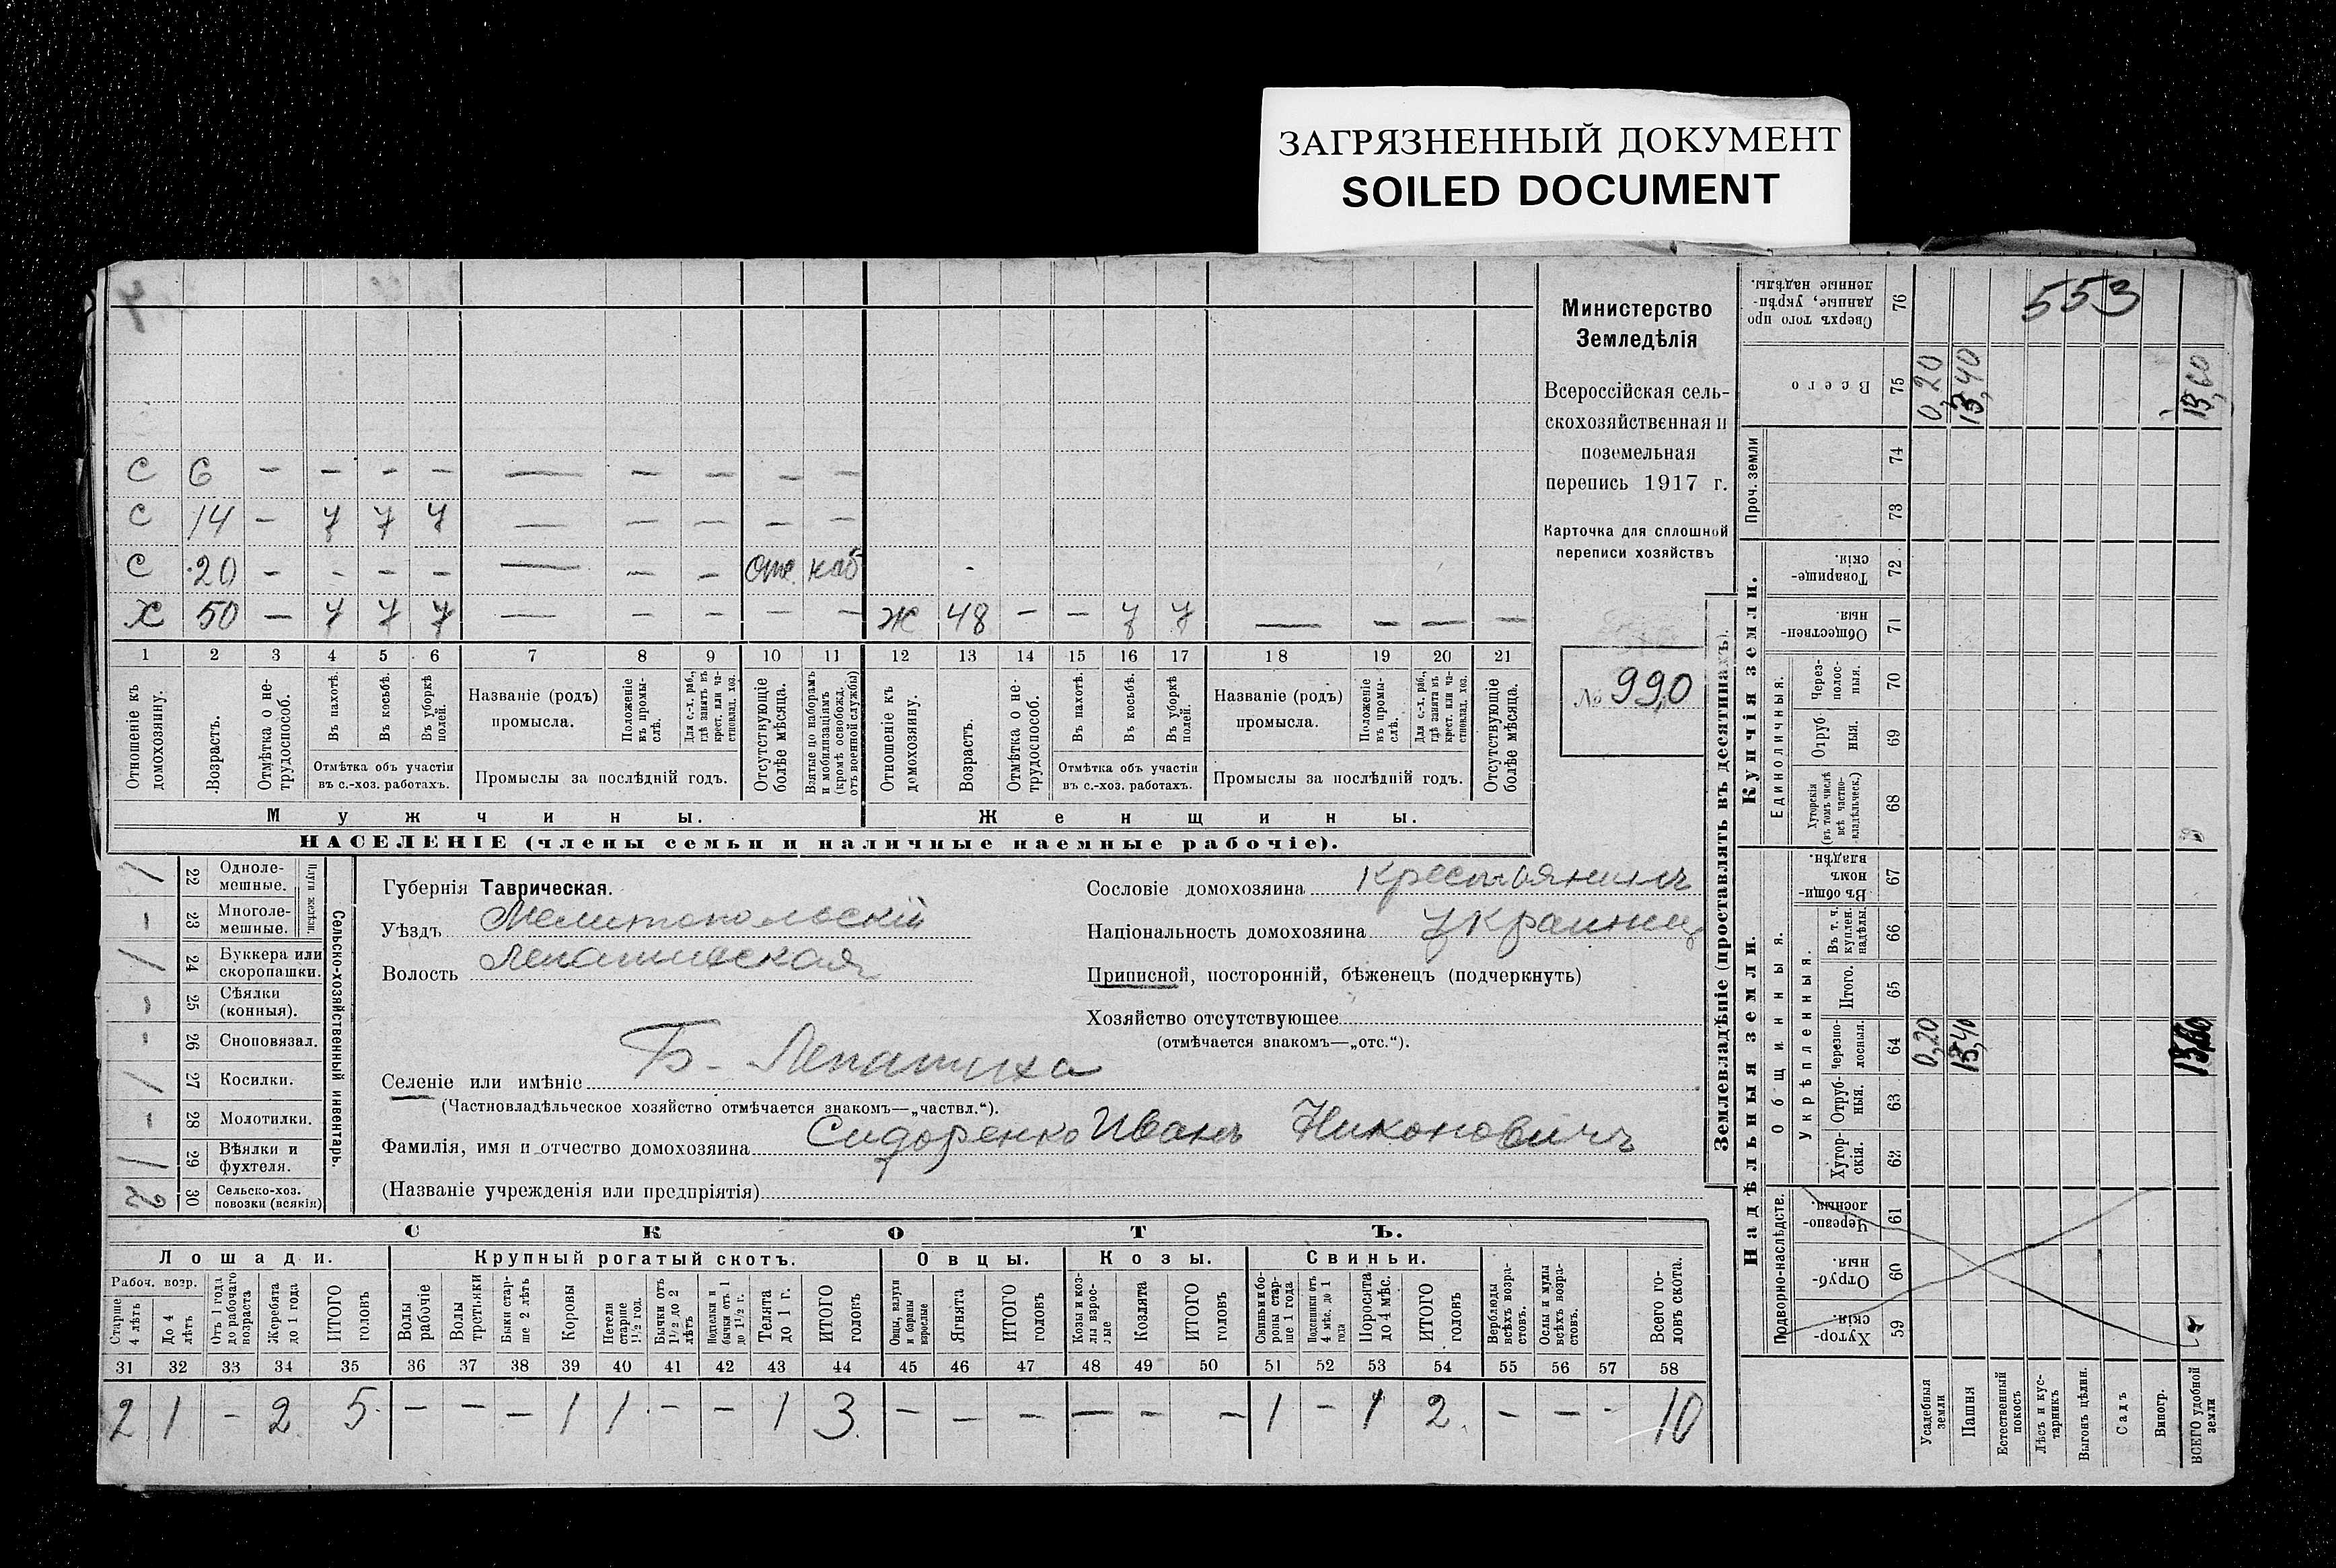 ЗАГРЯЗНЕННЫЙ ДОКУМЕНТ
SOILED DOCUMENT
553
С 6 — — — — — — — — —
С 14 — 7 7 7 — — — — —
С 20 — — — — — — — отс наб
Х 50 — 7 7 7 — — — — — Ж 48 — — 7 7 — — — —
1 2 3 4 5 6 7 8 9 10 11 12 13 14 15 16 17 18 19 20 21
Отношеніе къ домохозяину.
Возрастъ.
Отмѣтка о нетрудоспособ.
Въ пахотѣ.
Въ косьбѣ.
Въ уборкѣ полей.
Отмѣтка объ участіи
въ с.-хоз. работахъ.
Названіе (родъ)
промысла.
Положеніе въ промыслѣ.
Для с.-х. раб., гдѣ занятъ въ крест. или частновлад. хоз.
Промыслы за послѣдній годъ.
Отсутствующіе болѣе мѣсяца.
Взятые по наборамъ и мобилизаціямъ (кромѣ освобожд. отъ военной службы)
Отношеніе къ домохозяину.
Возрастъ.
Отмѣтка о нетрудоспособ.
Въ пахотѣ.
Въ косьбѣ.
Въ уборкѣ полей.
Отмѣтка объ участіи
въ с.-хоз. работахъ.
Названіе (родъ)
промысла.
Положеніе въ промыслѣ.
Для с.-х. раб., гдѣ занята въ крест. или частновлад. хоз.
Промыслы за послѣдній годъ.
Отсутствующіе болѣе мѣсяца.
Мужчины. Женщины.
НАСЕЛЕНІЕ (члены семьи и наличные наемные рабочіе).
Министерство
Земледѣлія
Всероссійская сель-
скохозяйственная и
поземельная
перепись 1917 г.
Карточка для сплошной
переписи хозяйствъ
№ 990
Сельско-хозяйственный инвентарь.
Плуги желѣзн.
/ 22 Одноле-
мешные.
— 23 Многоле-
мешные.
/ 24 Буккера или
скоропашки.
— 25 Сѣялки
(конныя).
— 26 Сноповязал.
/ 27 Косилки.
— 28 Молотилки.
/ 29 Вѣялки и
фухтеля.
2 30 Сельско-хоз.
повозки (всякія)
Губернія Таврическая.
Уѣздъ Мелитопольскій
Волость Лепатихская
Сословіе домохозяина Крестьянинъ
Національность домохозяина украинец
Приписной, посторонній, бѣженецъ (подчеркнуть)
Хозяйство отсутствующее
(отмѣчается знакомъ—„отс.“).
Селеніе или имѣніе Б - Лепатиха
(Частновладѣльческое хозяйство отмѣчается знакомъ—„частвл.“).
Фамилія, имя и отчество домохозяина Сидоренко Иванъ Никоновичъ
(Названіе учрежденія или предпріятія)
СКОТЪ.
Лошади. Крупный рогатый скотъ. Овцы. Козы. Свиньи.
Рабоч. возр.
Старше 4 лѣтъ
До 4 лѣтъ
Отъ 1 года до рабочаго возраста
Жеребята до 1 года
ИТОГО головъ
Волы рабочіе
Волы третьяки
Быки старше 2 лѣтъ
Коровы
Нетели старше 1½ год.
Бычки отъ 1½ до 2 лѣтъ
Подтелки и бычки отъ 1 до 1½ г.
Телята до 1 г.
ИТОГО головъ
Овцы, валухи и бараны взрослые
Ягнята
ИТОГО головъ
Козы и козлы взрослые
Козлята
ИТОГО головъ
Свиньи и боровы старше 1 года
Подсвинки отъ 4 мѣс. до 1 года
Поросята до 4 мѣс.
ИТОГО головъ
Верблюды всѣхъ возрастовъ.
Ослы и мулы всѣхъ возрастовъ.
Всего головъ скота.
31 32 33 34 35 36 37 38 39 40 41 42 43 44 45 46 47 48 49 50 51 52 53 54 55 56 57 58
2 1 — 2 5 — — — 1 1 — — 1 3 — — — — — — 1 — 1 2 — — — 10
Землевладѣніе (проставлять въ десятинахъ).
Надѣльныя земли.
Купчія земли.
Проч. земли
Подворно-наслѣдств.
Общинныя.
Укрѣпленныя.
Единоличныя.
Хутор-
скія. 59
Отруб-
ныя. 60
Черезпо-
лосныя. 61
Хутор-
скія. 62
Отруб-
ныя. 63
Черезпо-
лосныя. 64 0,20 13,40
Итого. 65
Въ т. ч. куплен. надѣлы. 66
Въ общинномъ владѣн. 67
Хуторскія (въ томъ числѣ всѣ частновладѣльческ.) 68
Отруб-
ныя. 69
Через-
полос-
ныя. 70
Обществен-
ныя. 71
Товарище-
скія. 72
73
74
Всего 75 0,20 13,40 13,60
Сверхъ того проданные, укрѣпленные надѣлы. 76
Усадебныя земли
Пашня
Естественный покосъ
Лѣсъ и кустарникъ
Выгонъ цѣлин.
Садъ
Виногр.
ВСЕГО удобной земли